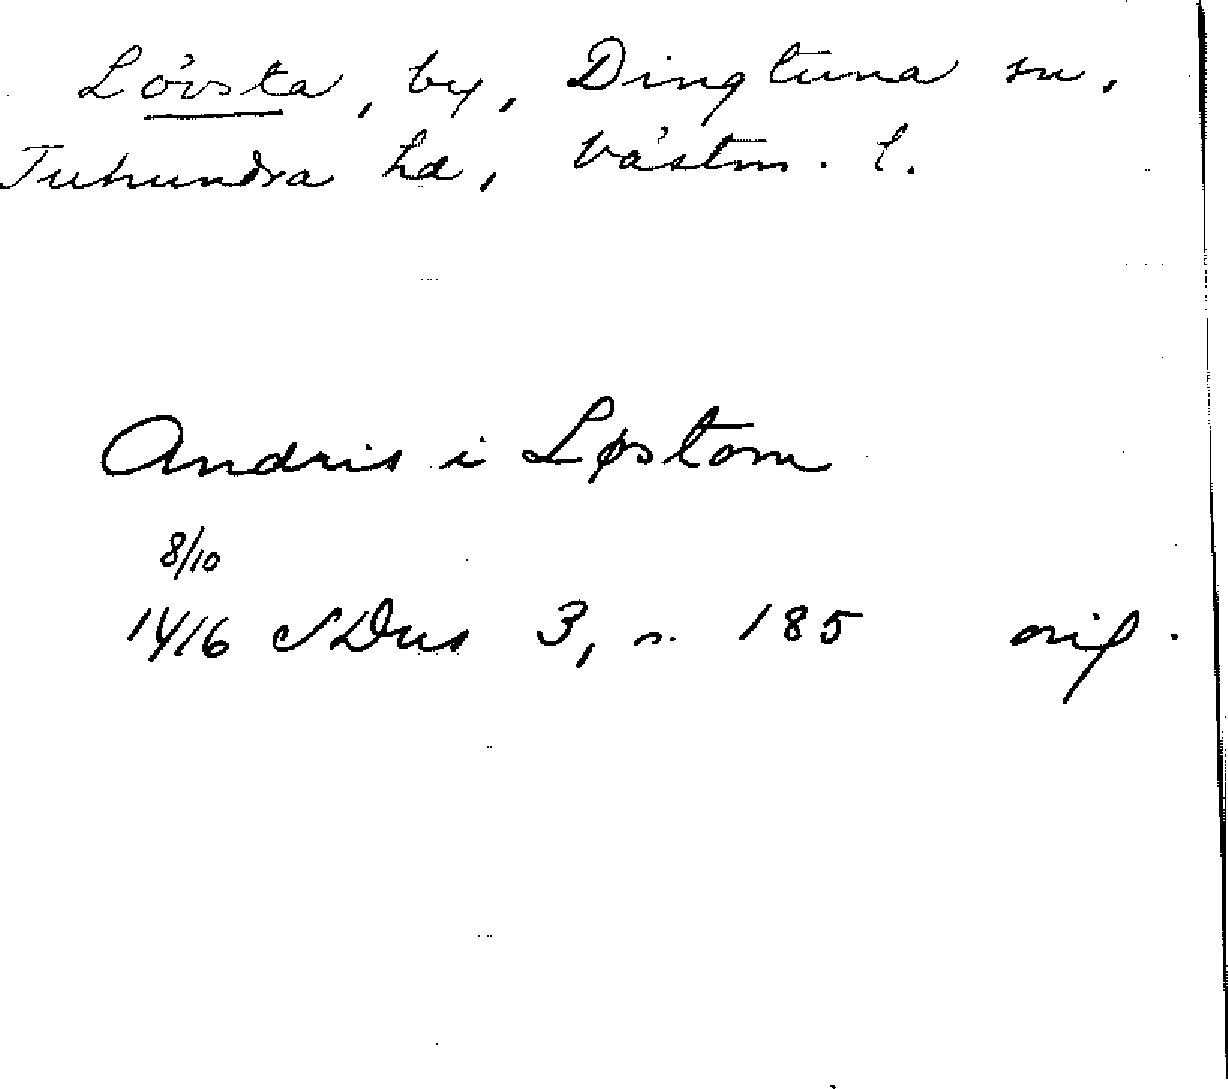 Lövsta, by, Dingtuna sn,
Tuhundra hd, Västm. l.
Andris i Løstom
8/10
1416 SDns 3, s. 185 orig.